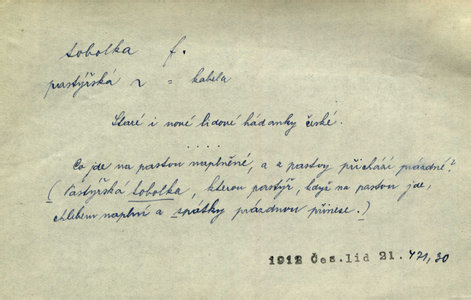 tobolka f.
pastýřská ~ = kabela
Staré i nové lidové hádanky české.
....
Co jde na pastvu naplněné, a z pastvy přichází prázdné?
(Pastýřská tobolka, kterou pastýř, když na pastvu jde,
chlebem naplní a zpátky prázdnou přinese.)
1912 Čes.lid 21. 421, 30